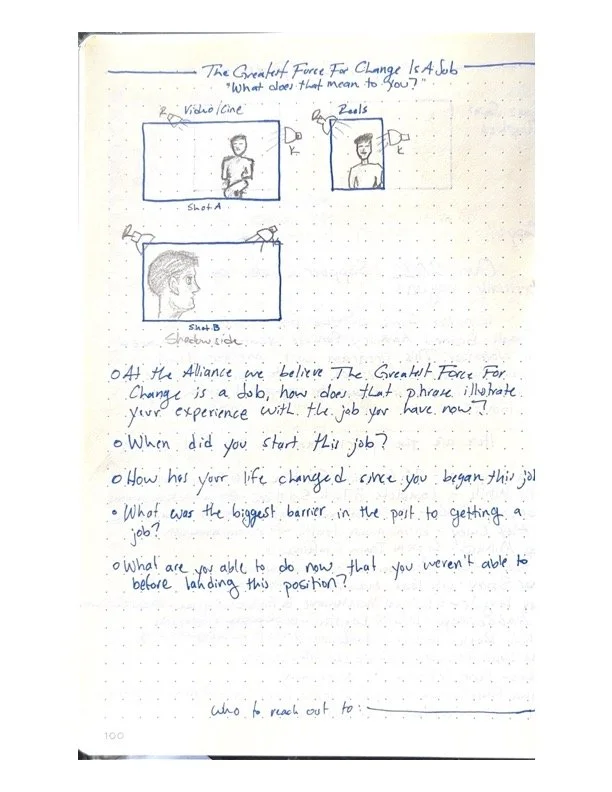 The Greatest Force For Change Is A Job
"What does that mean to you?"
Video/Cine
Reels
R
K
R
K
Shot A
R
Shot B
Shadow side
At the Alliance we believe The Greatest Force For
Change is a Job, how does that phrase illustrate
your experience with the job you have now?
When did you start this job?
How has your life changed since you began this jo
What was the biggest barrier in the past to getting a
job?
What are you able to do now that you weren't able to
before landing this position?
Who to reach out to:
100